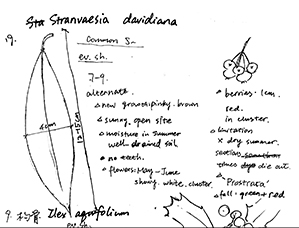 19. Stranvaesia davidiana
Common S-
ev. sh.
7-9.
alternate.
△ new growth: pinky brown
△ sunny, open site
△ moisture in summer
well drained soil
△ no teeth.
△ flowers: May - June
white. cluster.
4cm
△ berries - 1cm.
red.
in cluster.
△
× dry summer.
die out.
△ 'Prostrata'
△ fall - green → red
9. Ilex aquifolium